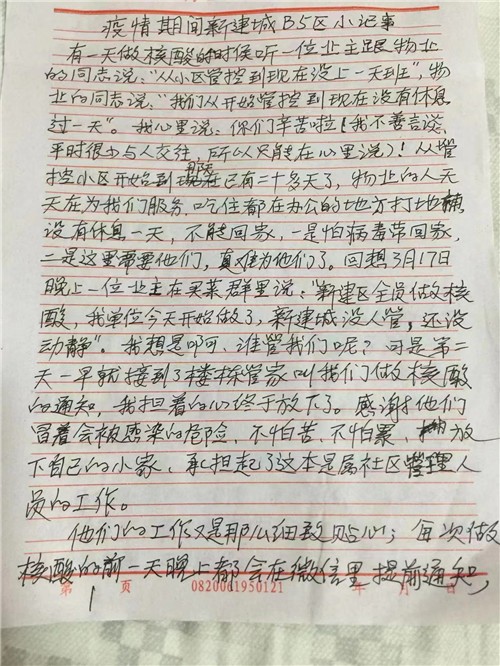 疫情期间新建城B5区小记事
有一天做核酸的时侯听一位业主跟物业
的同志说:“从小区管控到现在没上一天班”,物
业的同志说:“我们从开始管控到现在没有休息
过一天”。我心里说:你们辛苦啦(我不善言谈,
平时很少与人交往,所以只能在心里说)!从管
控小区开始到现在已有二十多天了,物业的人天
天在为我们服务,吃住都在办公的地方打地铺
没有休息一天,不能回家,一是怕病毒带回家,
二是这里需要他们,真难为他们了。回想3月17日
晚上一位业主在买菜群里说:“新建区全员做核
酸,我单位今天开始做了,新建城没人管,还没
动静”。我想是啊可,谁管我们呢?可是第二
天一早就接到了楼栋管家叫我们做核酸
的通知,我担着的心终于放下了。感谢他们
冒着会被感染的危险,不怕苦、不怕累、放
下自己的小家,承担起了这本是属社区管理人
员的工作。
他们的工作又是那么细致贴心;每次做
核酸的前一天晚上都会在微信里提前通知,
第1页 0820061950121 年 月 日